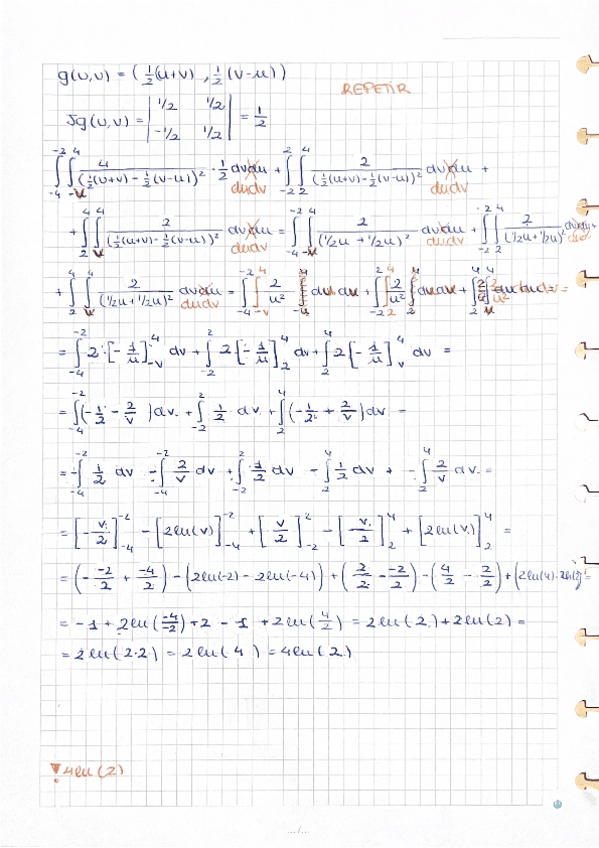 g(u,v) = ( 1/2(u+v) , 1/2(v-u) )
REPETIR
Jg(u,v) = | 1/2 1/2 ; -1/2 1/2 | = 1/2
∫_{-4}^{-2} ∫_{-v}^{4} 4/(1/2(u+v) - 1/2(v-u))² · 1/2 dvdu dudv + ∫_{-2}^{2} ∫_{2}^{4} 2/(1/2(u+v) - 1/2(v-u))² dvdu dudv +
+ ∫_{2}^{4} ∫_{v}^{4} 2/(1/2(u+v) - 1/2(v-u))² dvdu dudv = ∫_{-4}^{-2} ∫_{-v}^{4} 2/(1/2u + 1/2u)² dvdu dudv + ∫_{-2}^{2} ∫_{2}^{4} 2/(1/2u + 1/2u)² dvdu +
+ ∫_{2}^{4} ∫_{v}^{4} 2/(1/2u + 1/2u)² dvdu dudv = ∫_{-4}^{-2} ∫_{-v}^{4} 2/u² du dv + ∫_{-2}^{2} ∫_{2}^{4} 2/u² dudv + ∫_{2}^{4} ∫_{v}^{4} 2/u² dudv =
= ∫_{-4}^{-2} 2·[-1/u]_{-v}^{4} dv + ∫_{-2}^{2} 2[-1/u]_{2}^{4} dv + ∫_{2}^{4} 2[-1/u]_{v}^{4} dv =
= ∫_{-4}^{-2} (-1/2 - 2/v) dv + ∫_{-2}^{2} 1/2 dv + ∫_{2}^{4} (-1/2 + 2/v) dv =
= -∫_{-4}^{-2} 1/2 dv - ∫_{-4}^{-2} 2/v dv + ∫_{-2}^{2} 1/2 dv - ∫_{2}^{4} 1/2 dv + ∫_{2}^{4} 2/v dv =
= [-v/2]_{-4}^{-2} - [2ln(v)]_{-4}^{-2} + [v/2]_{-2}^{2} - [v/2]_{2}^{4} + [2ln(v)]_{2}^{4} =
= (- -2/2 + -4/2) - (2ln(-2) - 2ln(-4)) + (2/2 - -2/2) - (4/2 - 2/2) + (2ln(4) - 2ln(2)) =
= -1 + 2ln(-4/-2) + 2 - 1 + 2ln(4/2) = 2ln(2) + 2ln(2) =
= 2ln(2·2) = 2ln(4) = 4ln(2)
4ln(2)
.../...